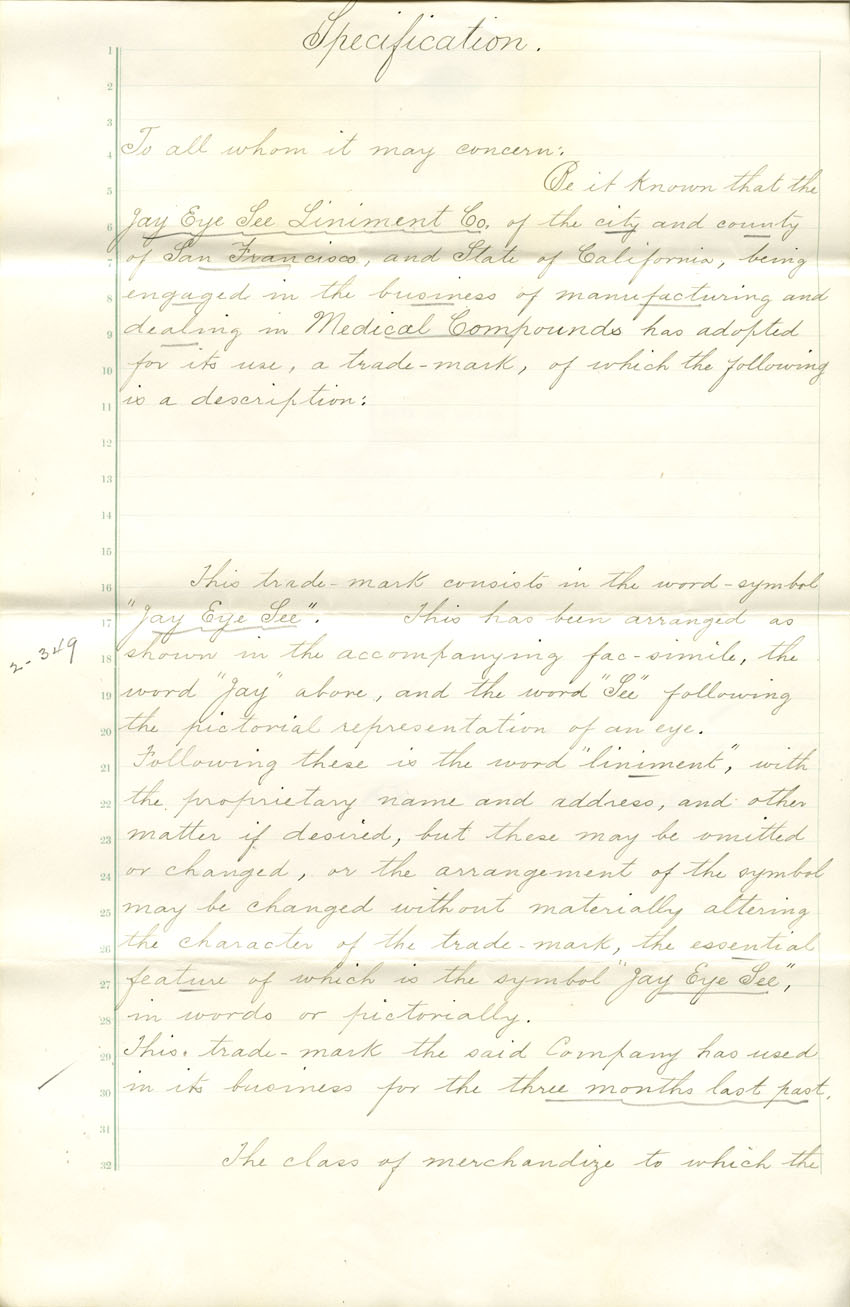 Specification.
1
2
3
4 To all whom it may concern:
5 Be it known that the
6 Jay Eye See Liniment Co. of the city and county
7 of San Francisco, and State of California, being
8 engaged in the business of manufacturing and
9 dealing in Medical Compounds has adopted
10 for its use, a trade-mark, of which the following
11 is a description:
12
13
14
15
16 This trade-mark consists in the word-symbol
17 "Jay Eye See". This has been arranged as
2-349
18 shown in the accompanying fac-simile, the
19 word "Jay" above, and the word "See" following
20 the pictorial representation of an eye.
21 Following these is the word "liniment", with
22 the proprietary name and address, and other
23 matter if desired, but these may be omitted
24 or changed, or the arrangement of the symbol
25 may be changed without materially altering
26 the character of the trade-mark, the essential
27 feature of which is the symbol "Jay Eye See",
28 in words or pictorially.
29 This trade-mark the said Company has used
30 in its business for the three months last past.
31
32 The class of merchandize to which the